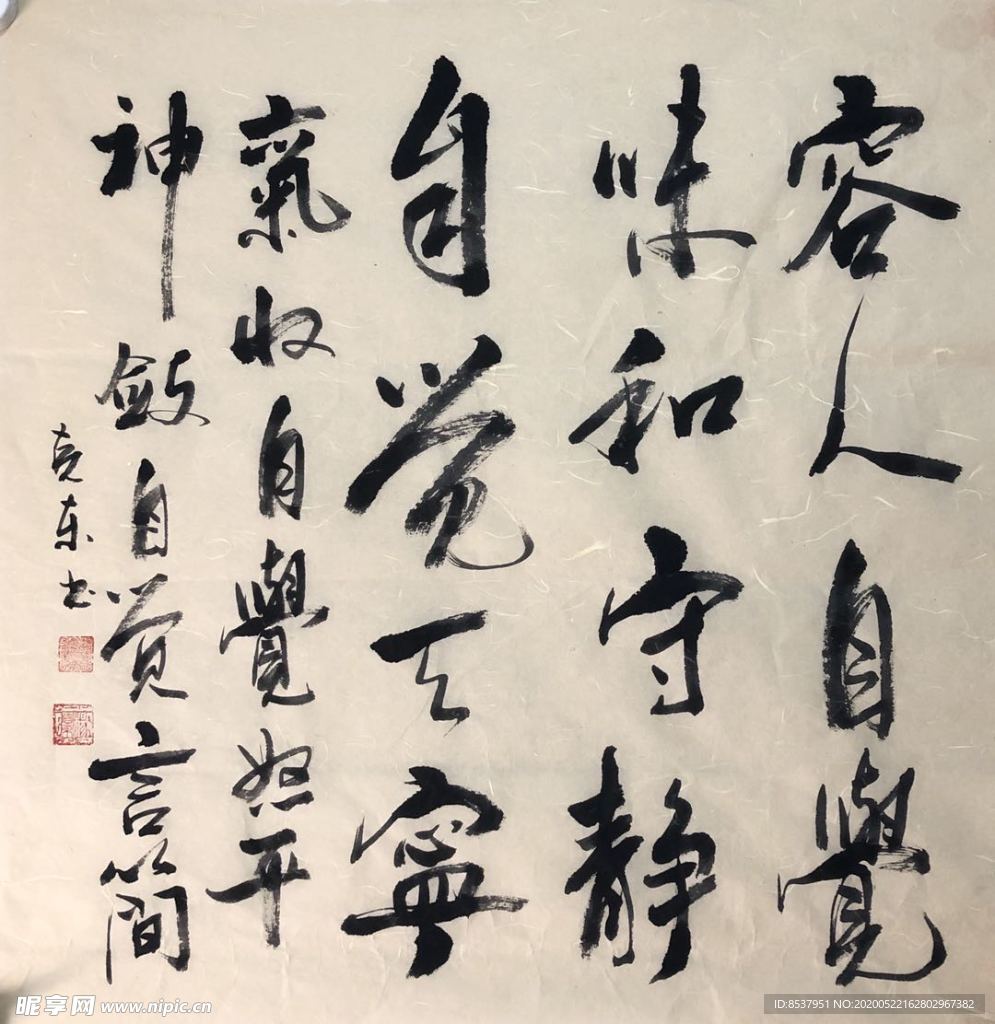 容人自覺
味和守静
自觉天寧
氣收自覺怒平
神敛自觉言简
克东书
昵享网 www.nipic.cn
ID:8537951 NO:20200522162802967382